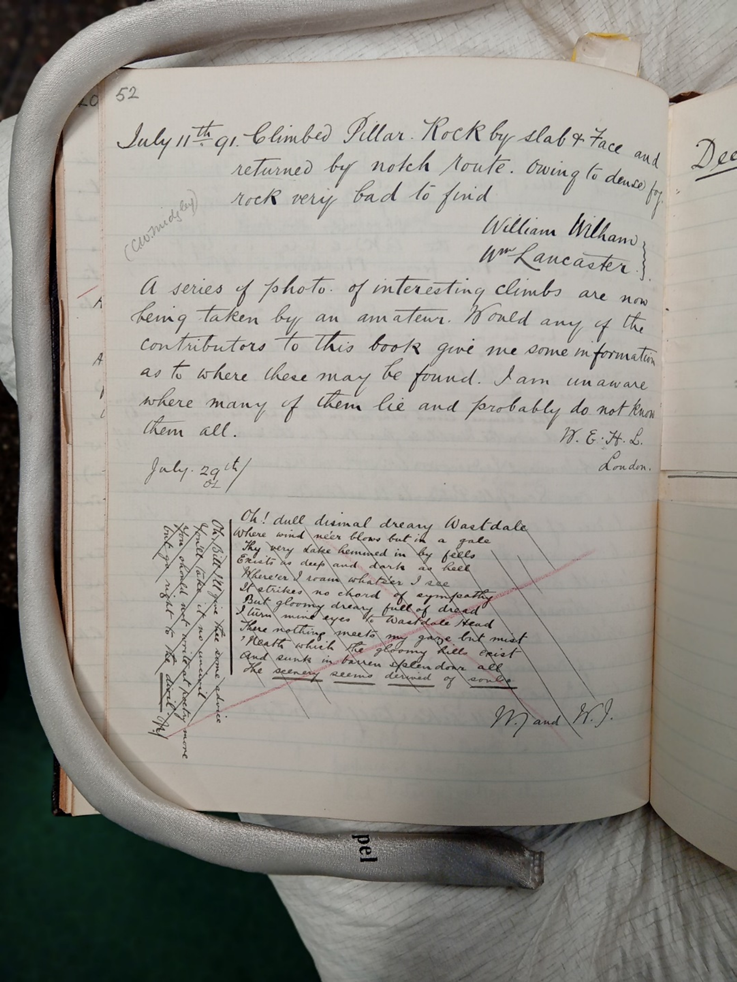 20
52
July 11th. 91. Climbed Pillar. Rock by slab & Face and
returned by notch route. Owing to dense fog.
rock very bad to find
(CW Smidgley)
William Witham
Wm Lancaster.
A series of photo. of interesting climbs are now
being taken by an amateur. Would any of the
contributors to this book give me some information
as to where these may be found. I am unaware
where many of them lie and probably do not know
them all.
W. E. H. L.
London.
July. 29th/
91
Oh! dull dismal dreary Wastdale
Where wind ne'er blows but in a gale
Thy very Lake hemmed in by fells
Exists as deep and dark as hell
Where'er I roam whate'er I see
It strikes no chord of sympathy
But gloomy dreary full of dread
I turn mine eyes to Wastdale Head
There nothing meets my gaze but mist
'Neath which the gloomy hills exist
And sunk in barren splendour all
The scenery seems devised of souls
W and W.J.
Oh Bill I'll give thee some advice
You'll take it no
You should not write at poetry more
But go right to the devil
Dec
pel